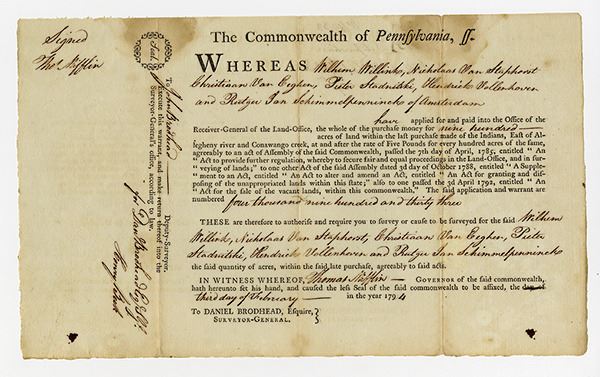 Signed
Tho. Mifflin
Seal.
To John Brodhead Deputy-Surveyor.
Execute this warrant, and make return thereof into the
Surveyor-General's office, according to law.
for Dan Brodhead Esqr. S.G.
The Commonwealth of Pennsylvania, ss.
WHEREAS Wilhem Willink, Nicholaas Van Staphorst
Christiaan Van Eeghen, Pieter Stadnitski, Hendrick Vollenhoven
and Rutger Jan Schimmelpenninck of Amsterdam
have applied for and paid into the Office of the
Receiver-General of the Land-Office, the whole of the purchase money for nine hundred
acres of land within the last purchase made of the Indians, East of Al-
legheny river and Conawango creek, at and after the rate of Five Pounds for every hundred acres of the same,
agreeably to an act of Assembly of the said Commonwealth, passed the 7th day of April, 1785, entitled "An
"Act to provide further regulation, whereby to secure fair and equal proceedings in the Land-Office, and in sur-
"veying of lands," to one other Act of the said Assembly dated 3d day of October 1788, entitled "A Supple-
"ment to an Act, entitled "An Act to alter and amend an Act, entitled "An Act for granting and dis-
posing of the unappropriated lands within this state;" also to one passed the 3d April 1792, entitled "An
"Act for the sale of the vacant lands, within this commonwealth." The said application and warrant are
numbered four thousand nine hundred and thirty three
THESE are therefore to authorise and require you to survey or cause to be surveyed for the said Wilhem
Willink, Nicholaas Van Staphorst, Christiaan Van Eeghen, Pieter
Stadnitski, Hendrick Vollenhoven and Rutger Jan Schimmelpenninck
the said quantity of acres, within the said late purchase, agreeably to said acts.
IN WITNESS WHEREOF, Thomas Mifflin GOVERNOR of the said commonwealth,
hath hereunto set his hand, and caused the less Seal of the said commonwealth to be affixed, the day of
third day of February in the year 1794
To DANIEL BRODHEAD, Esquire,
SURVEYOR-GENERAL.